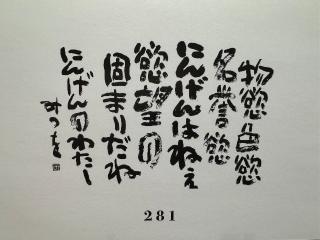 物慾色慾
名誉慾
にんげんはねぇ
慾望の
固まりだね
にんげんのわたし
みつを
281